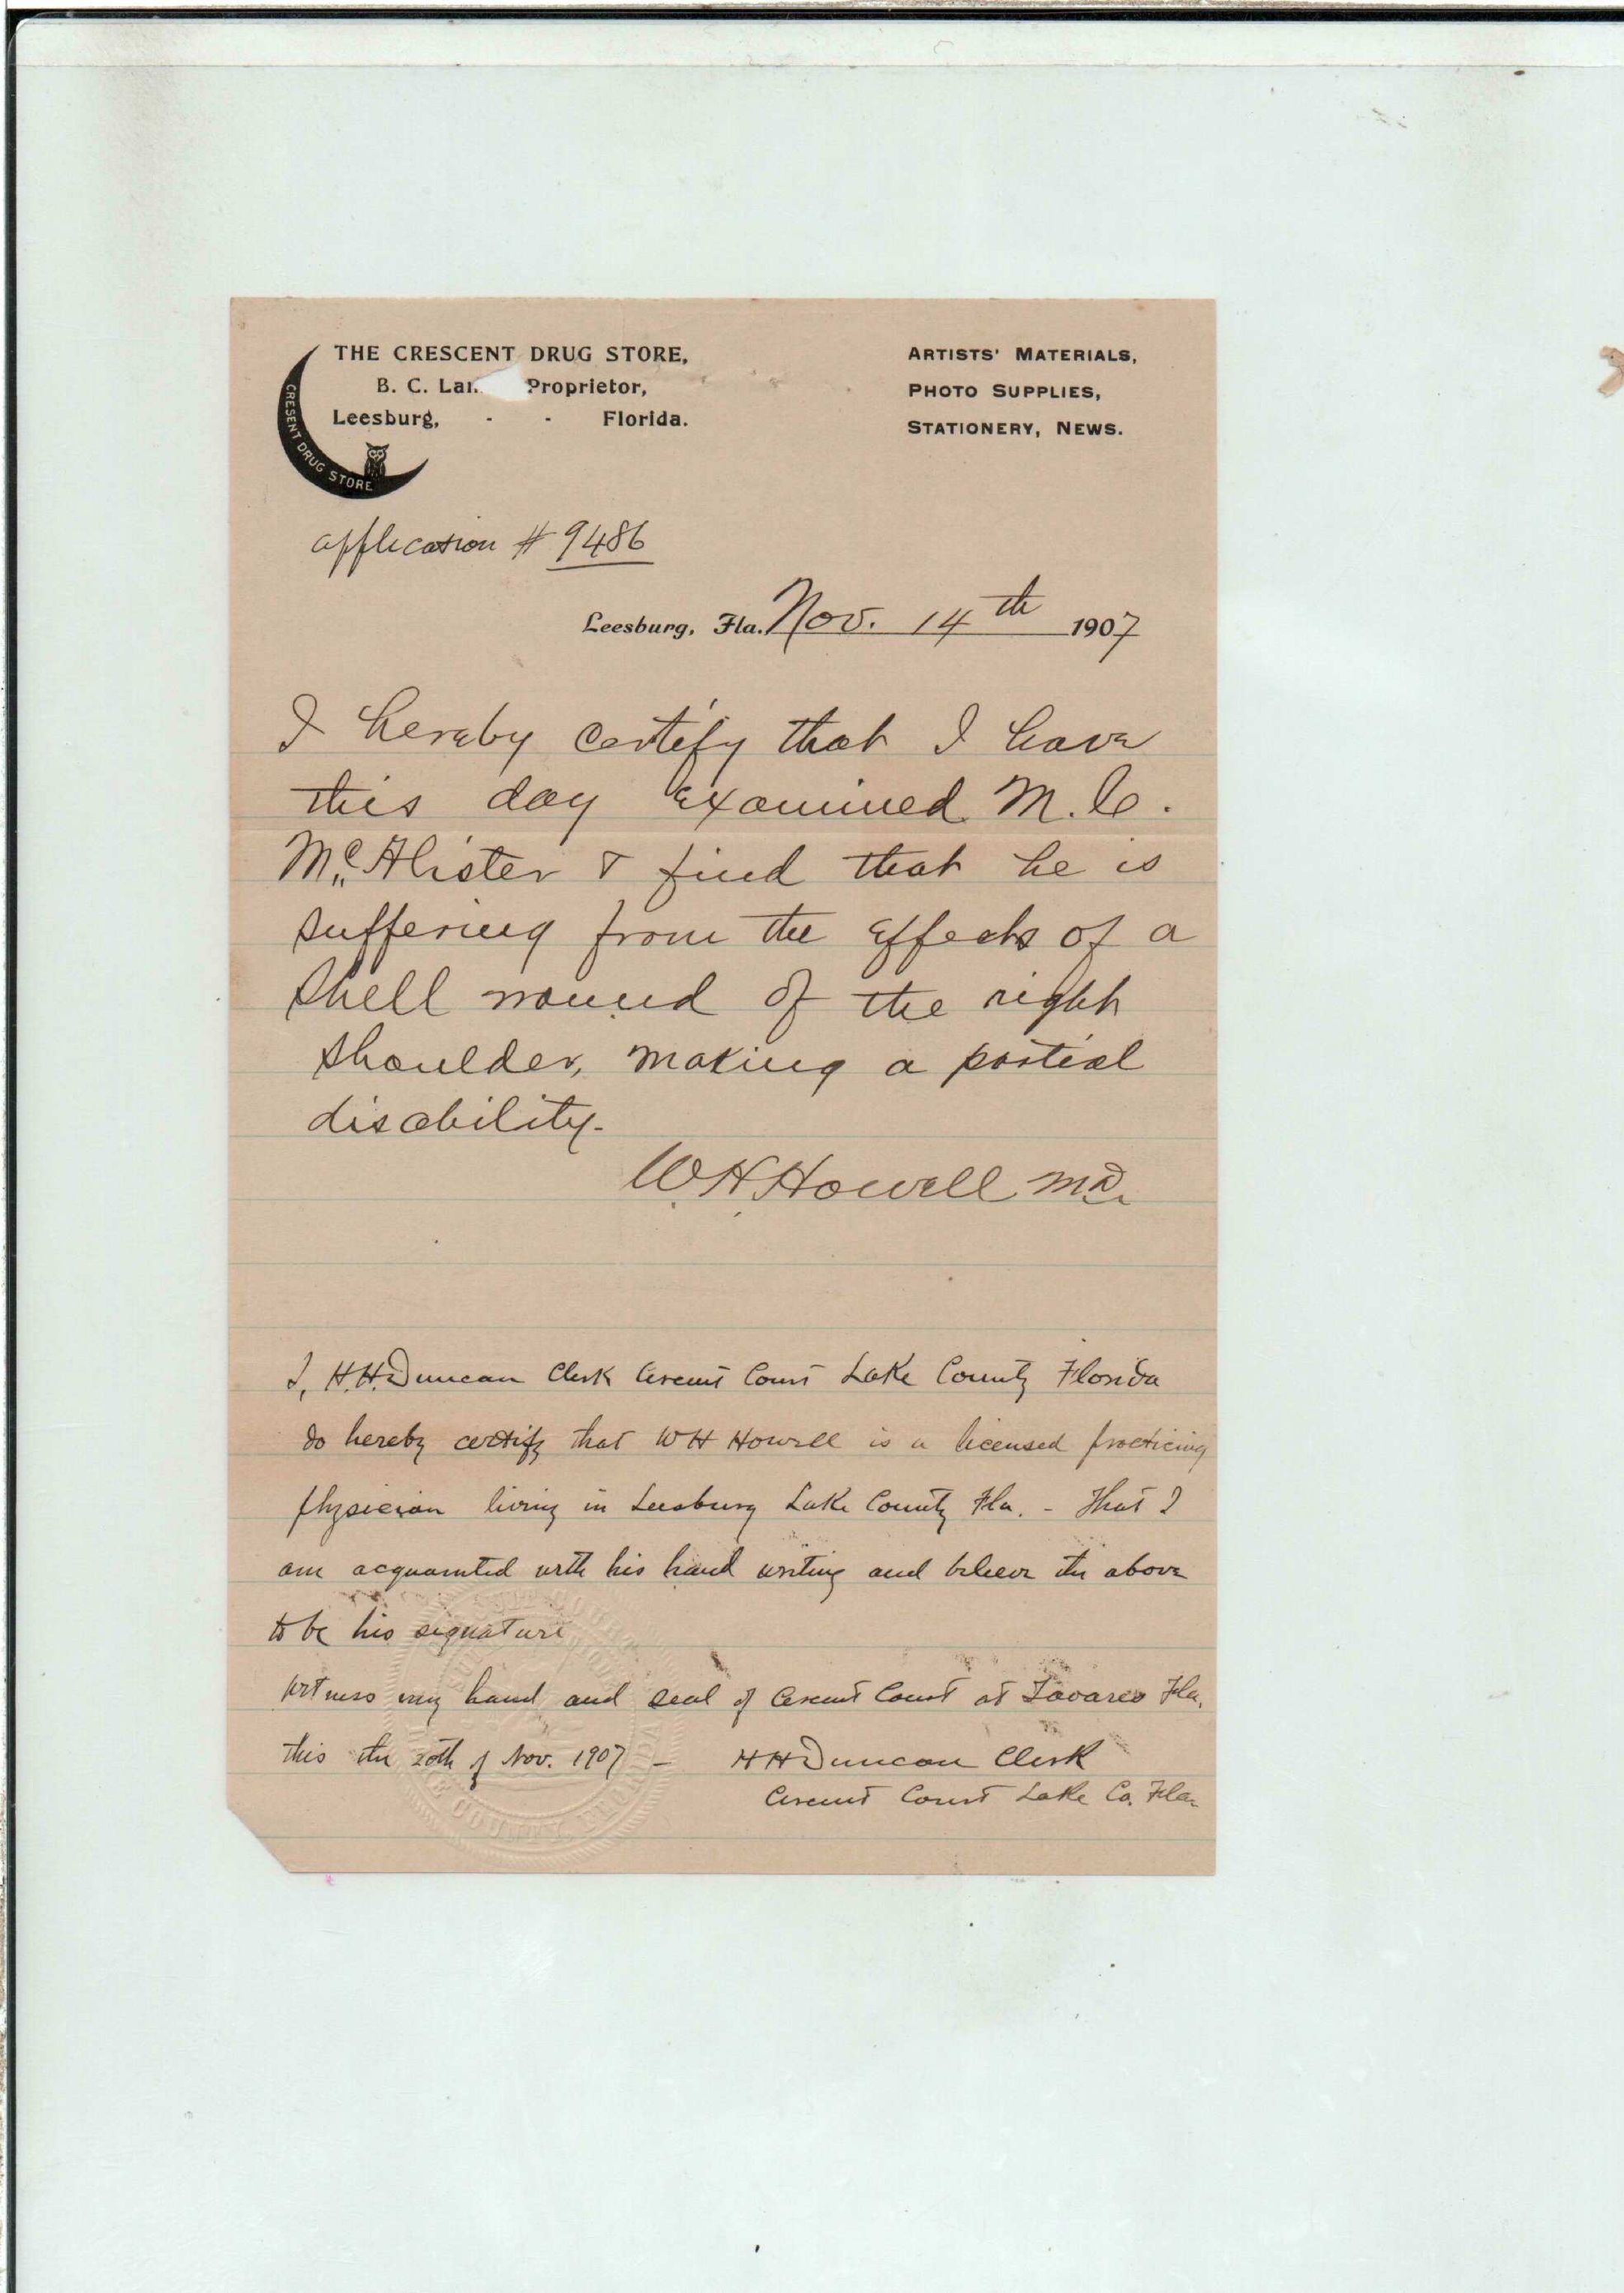 THE CRESCENT DRUG STORE,
B. C. Proprietor,
Leesburg, - - Florida.
CRESENT DRUG STORE
ARTISTS' MATERIALS,
PHOTO SUPPLIES,
STATIONERY, NEWS.
application # 9486
Leesburg, Fla. Nov. 14th 1907
I hereby certify that I have
this day examined M. C.
McAlister & find that he is
suffering from the effects of a
shell wound of the right
shoulder, making a partial
disability.
W H Howell MD.
I, H.H. Duncan Clerk Circuit Court Lake County Florida
do hereby certify that W H Howell is a licensed practicing
physician living in Leesburg Lake County Fla. - That I
am acquainted with his hand writing and believe the above
to be his signature
Witness my hand and seal of Circuit Court at Tavares Fla.
this the 20th of Nov. 1907 - H H Duncan Clerk
Circuit Court Lake Co. Fla.
COUNTY, FLORIDA